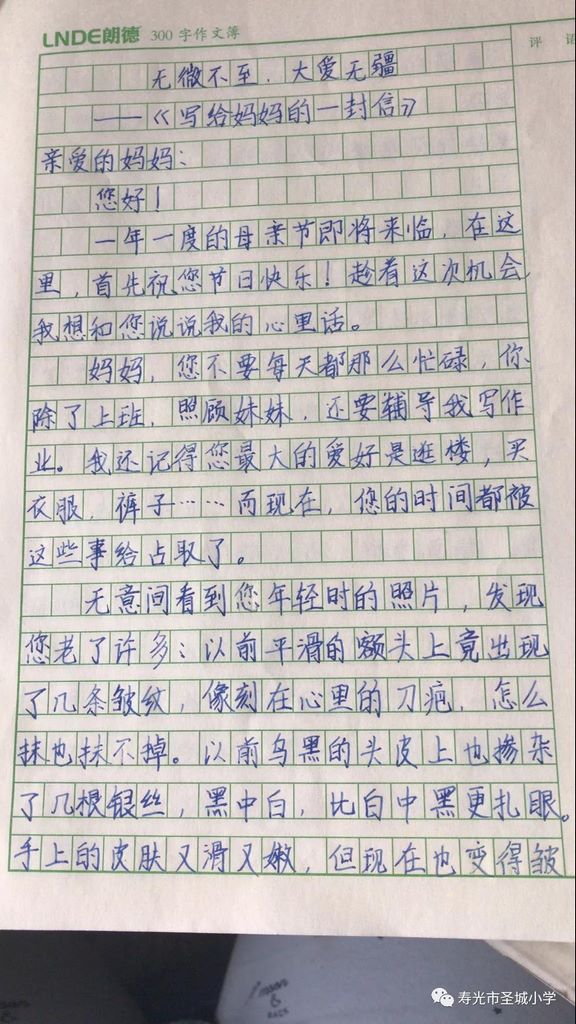 LNDE朗德 300字作文簿
评 语
无微不至,大爱无疆
——《写给妈妈的一封信》
亲爱的妈妈:
您好!
一年一度的母亲节即将来临,在这
里,首先祝您节日快乐!趁着这次机会,
我想和您说说我的心里话。
妈妈,您不要每天都那么忙碌,你
除了上班,照顾妹妹,还要辅导我写作
业。我还记得您最大的爱好是逛楼,买
衣服,裤子……而现在,您的时间都被
这些事给占取了。
无意间看到您年轻时的照片,发现
您老了许多:以前平滑的额头上竟出现
了几条皱纹,像刻在心里的刀疤,怎么
抹也抹不掉。以前乌黑的头皮上也掺杂
了几根银丝,黑中白,比白中黑更扎眼。
手上的皮肤又滑又嫩,但现在也变得皱
寿光市圣城小学